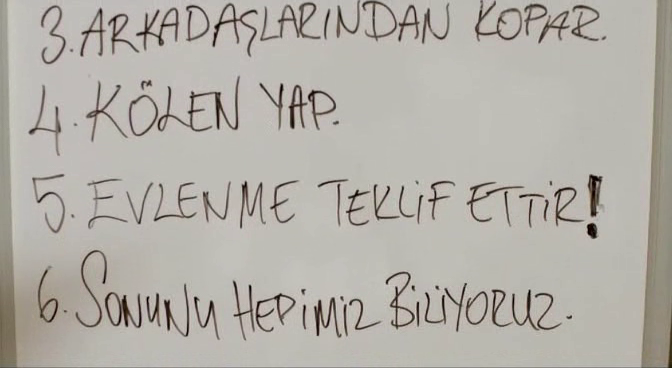 3. ARKADAŞLARINDAN KOPAR.
4. KÖLEN YAP.
5. EVLENME TEKLİF ETTİR!
6. SONUNU HEPİMİZ BİLİYORUZ.